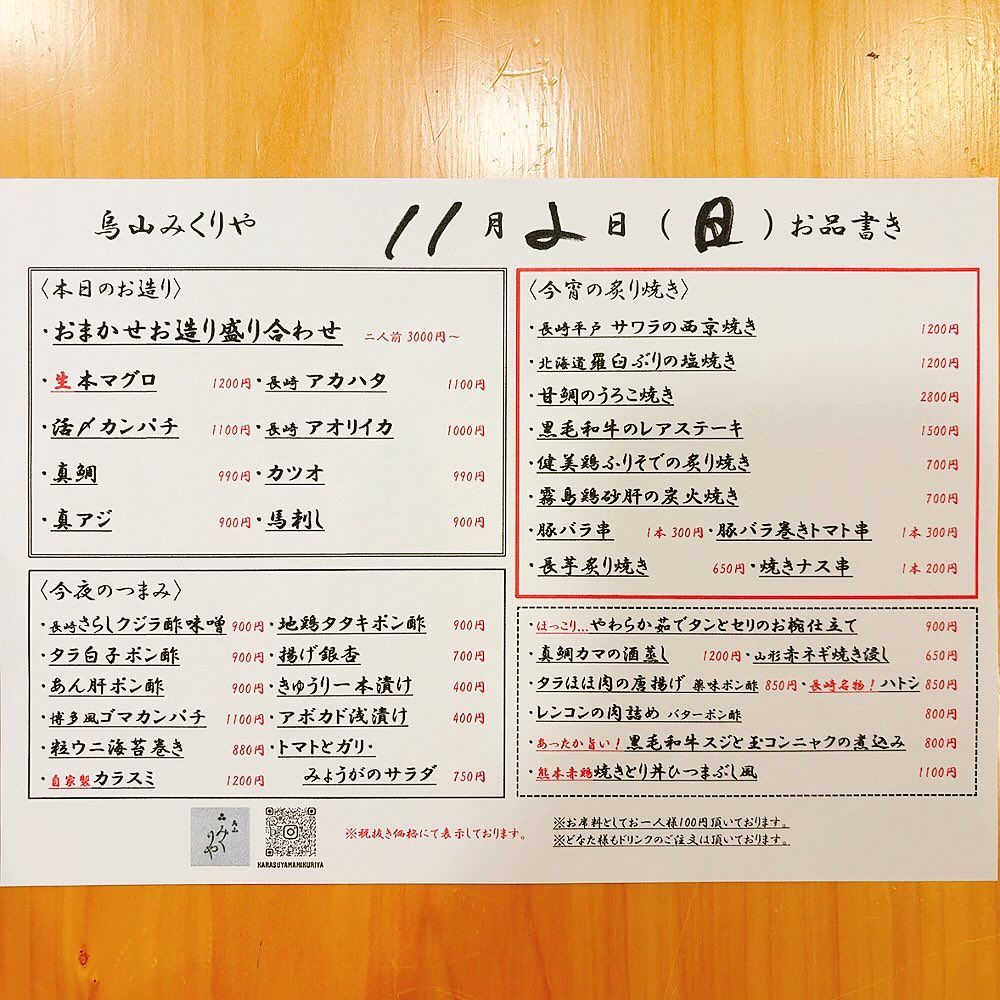 烏山みくりや 11月2日(日)お品書き
〈本日のお造り〉
・おまかせお造り盛り合わせ 二人前 3000円～
・生本マグロ 1200円・長崎 アカハタ 1100円
・活〆カンパチ 1100円・長崎 アオリイカ 1000円
・真鯛 990円・カツオ 990円
・真アジ 900円・馬刺し 900円
〈今夜のつまみ〉
・長崎さらしクジラ酢味噌 900円・地鶏タタキポン酢 900円
・タラ白子ポン酢 900円・揚げ銀杏 700円
・あん肝ポン酢 900円・きゅうり一本漬け 400円
・博多風ゴマカンパチ 1100円・アボカド浅漬け 400円
・粒ウニ海苔巻き 880円・トマトとガリ・
・自家製カラスミ 1200円 みょうがのサラダ 750円
〈今宵の炙り焼き〉
・長崎平戸 サワラの西京焼き 1200円
・北海道羅臼ぶりの塩焼き 1200円
・甘鯛のうろこ焼き 2800円
・黒毛和牛のレアステーキ 1500円
・健美鶏ふりそでの炙り焼き 700円
・霧島鶏砂肝の炭火焼き 700円
・豚バラ串 1本 300円・豚バラ巻きトマト串 1本 300円
・長芋炙り焼き 650円・焼きナス串 1本 200円
・ほっこり…やわらか茹でタンとセリのお椀仕立て 900円
・真鯛カマの酒蒸し 1200円・山形赤ネギ焼き浸し 650円
・タラほほ肉の唐揚げ 薬味ポン酢 850円・長崎名物！ハトシ 850円
・レンコンの肉詰め バターポン酢 800円
・あったか旨い！黒毛和牛スジと玉コンニャクの煮込み 800円
・熊本赤鶏焼きとり丼ひつまぶし風 1100円
烏山
みくりや
KARASUYAMAMIKURIYA
※税抜き価格にて表示しております。
※お席料としてお一人様100円頂いております。
※どなた様もドリンクのご注文は頂いております。